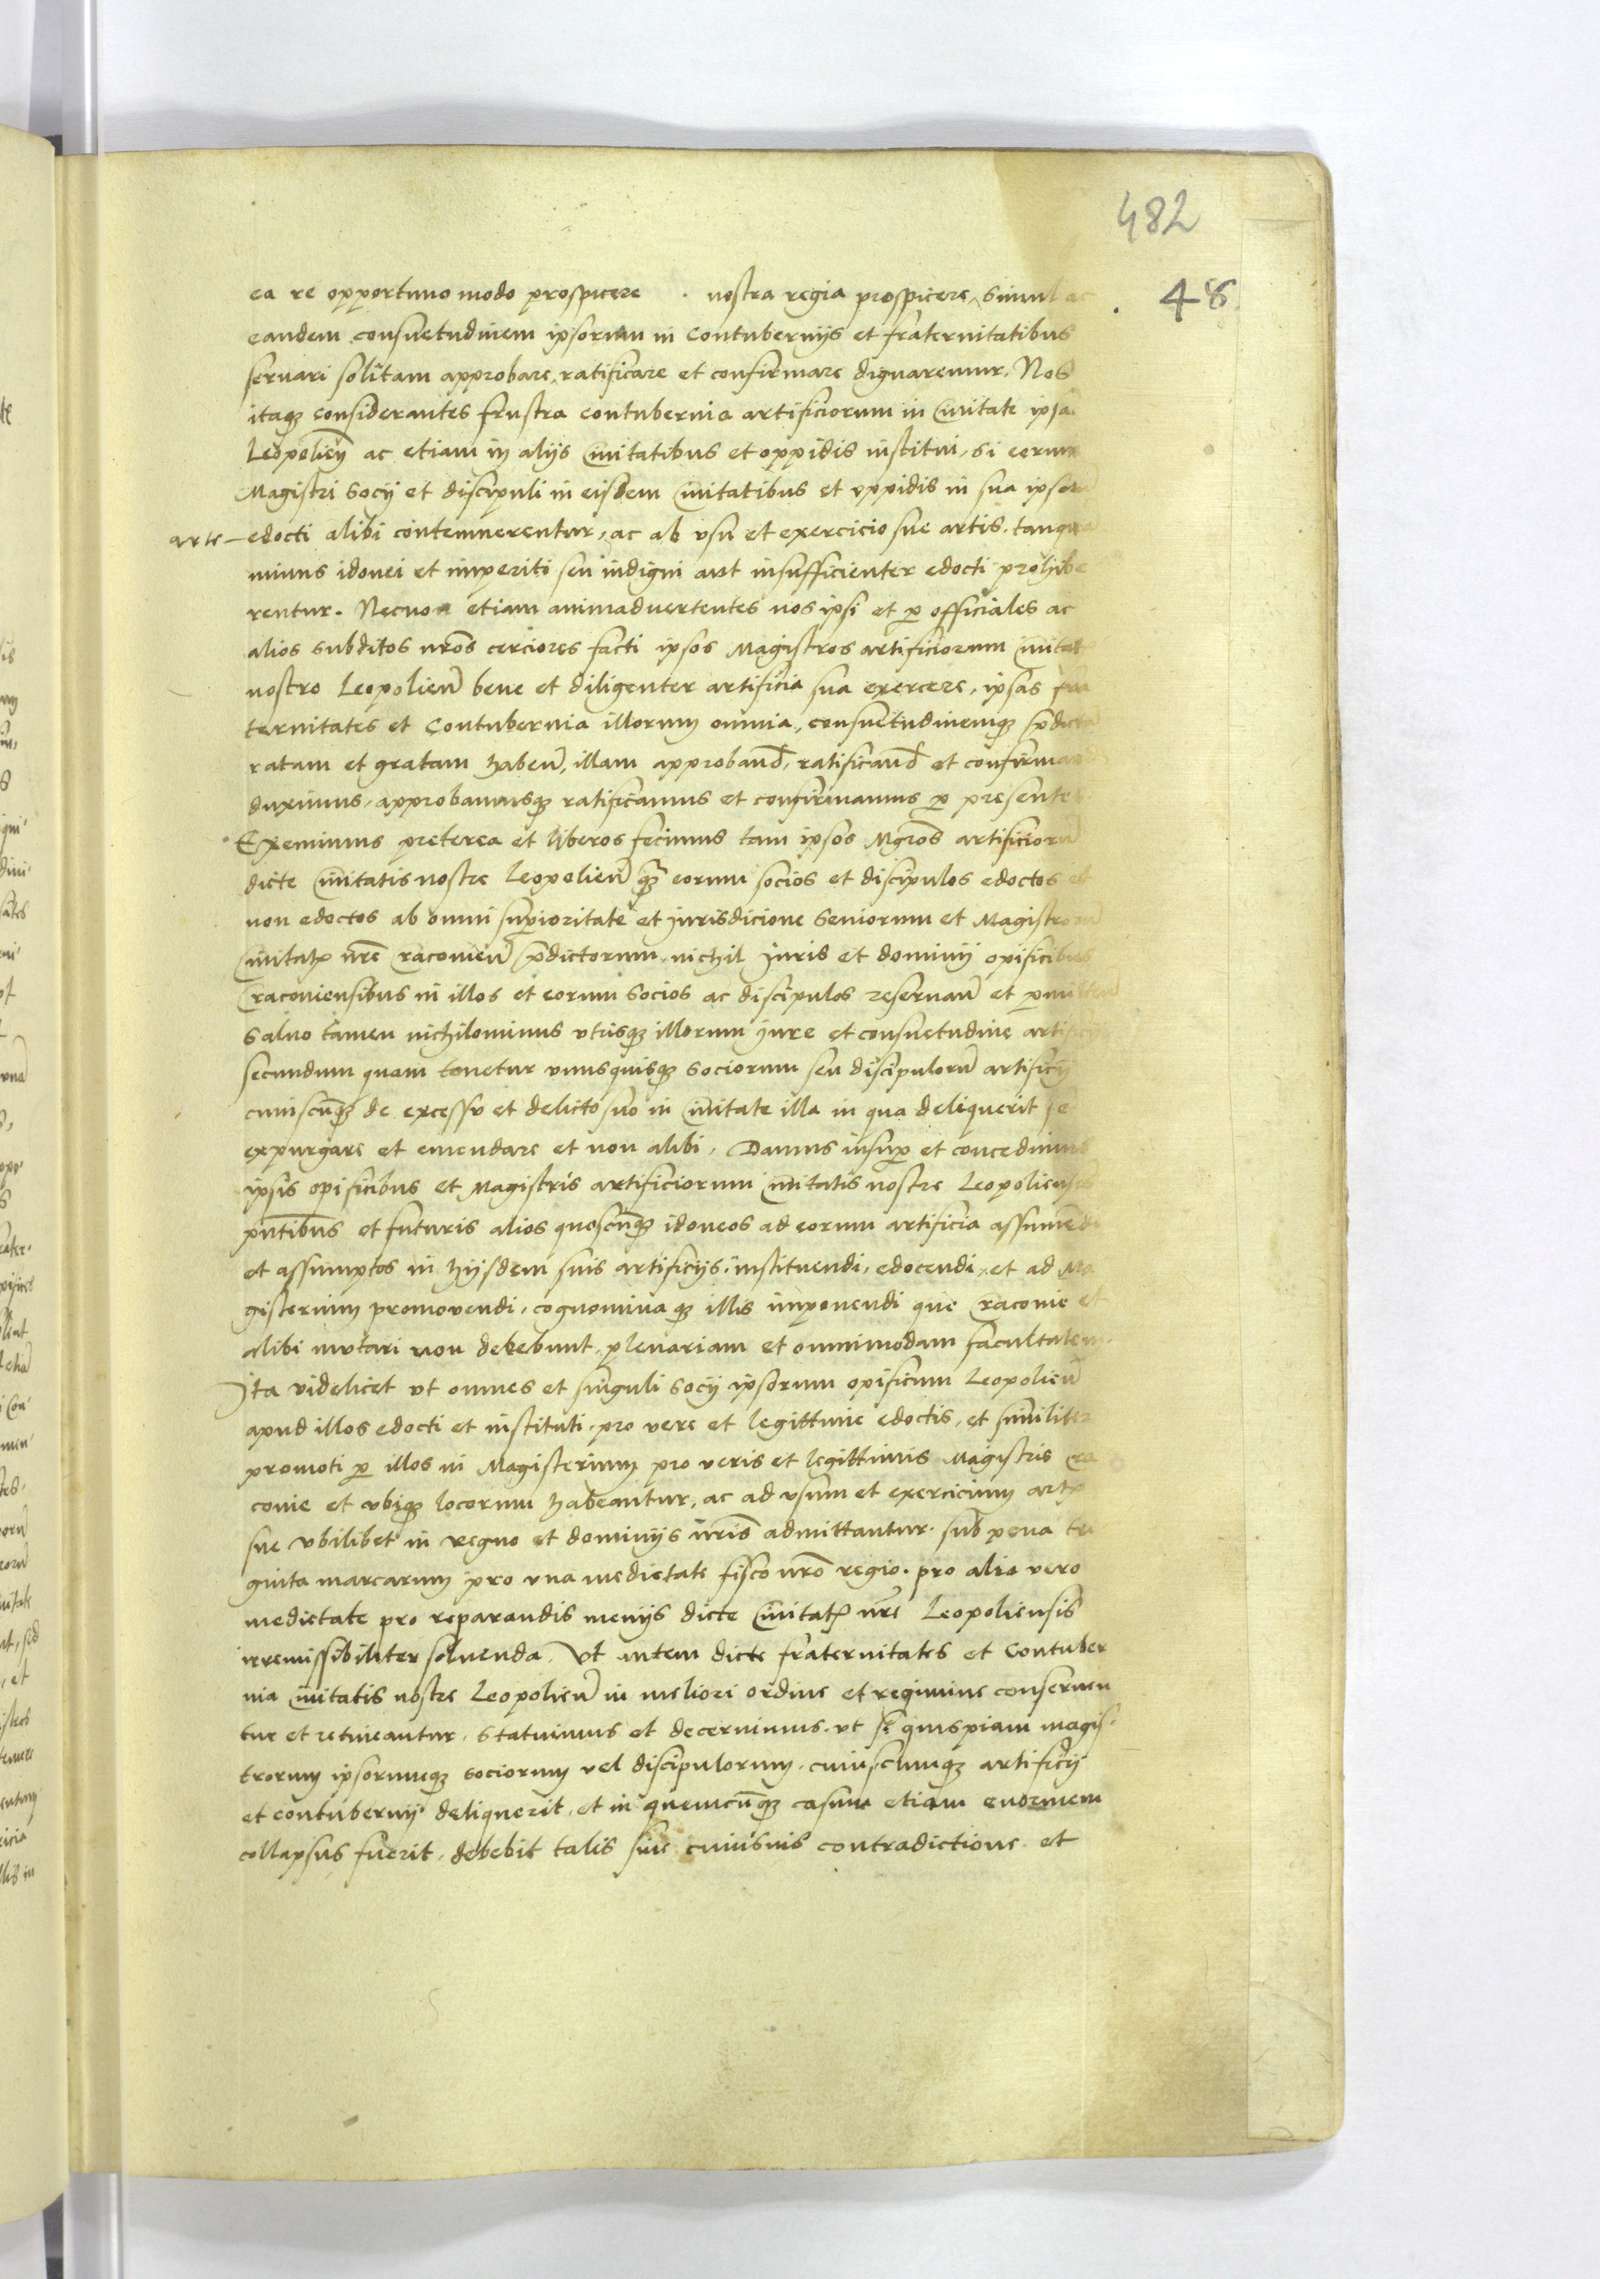 482
48
ea re opportuno modo prospicere . nostra regia prospicere, simul ac
eandem consuetudinem ipsorum in contubernijs et fraternitatibus
seruari solitam approbare, ratificare et confirmare dignaremur. Nos
itaqꝫ considerantes frustra contubernia artificiorum in Ciuitate ipsa
Leopolien̄ ac etiam in alijs Ciuitatibus et oppidis institui, si eorum
Magistri socij et discipuli in eisdem Ciuitatibus et oppidis in sua ipsorum
arte – edocti alibi contemnerentur, ac ab vsu et exercicio sue artis, tanquam
minus idonei et imperiti seu indigni aut insufficienter edocti prohibe
rentur. Necnon etiam animaduertentes nos ipsi et ꝑ officiales ac
alios subditos nr̄os cerciores facti ipsos Magistros artificiorum Ciuitat
nostre Leopolien̄ bene et diligenter artificia sua exercere, ipsas fra
ternitates et Contubernia illorum omnia, consuetudinemqꝫ p̄dictam
ratam et gratam haben̄, illam approband̄, ratificand̄ et confirmand
duximus, approbamusqꝫ ratificamus et confirmamus ꝑ presentes
Eximimus preterea et liberos fecimus tam ipsos Mgr̄os artificiorū
dicte Ciuitatis nostre Leopolien̄ qꝫ̄ eorum socios et discipulos edoctos et
non edoctos ab omni supioritate et Jurisdicione Seniorum et Magistrorū
Ciuitatꝭ nr̄e Cracouien̄ p̄dictorum, nichil Juris et dominij opificibus
Cracouiensibus in illos et eorum socios ac discipulos reseruan̄ et ꝑmitten̄
Saluo tamen nichilominus vtrisqꝫ illorum Jure et consuetudine artificij
secundum quam tenetur vnusquisqꝫ sociorum seu discipulorū artificij
cuiuscūqꝫ de excessu et delicto suo in Ciuitate illa in qua deliquerit se
expurgare et emendare et non alibi. Damus insuꝑ et concedimus
ipsis opificibus et Magistris artificiorum Ciuitatis nostre Leopoliensis
pn̄tibus et futuris alios quoscūqꝫ idoneos ad eorum artificia assumēdi
et assumptos in hijsdem suis artificijs, instituendi, edocendi, et ad Ma
gisterium promouendi, cognomina qꝫ illis imponendi que Cracouie et
alibi mutari non debebunt, plenariam et omnimodam facultatem.
Ita videlicet vt omnes et singuli socij ipsorum opificum Leopolien̄
apud illos edocti et instituti, pro vere et legittime edoctis, et similiter
promoti ꝑ illos in Magisterium pro veris et legittimis Magistris Cra
couie et vbiqꝫ locorum habeantur, ac ad vsum et exercicium artꝭ
sue vbilibet in regno et dominijs nr̄is admittantur. sub pena tri
ginta marcarum pro vna medietate fisco nr̄o regio. pro alia vero
medietate pro reparandis menijs dicte Ciuitatꝭ nr̄e Leopoliensis
irremissibiliter soluenda. Vt autem dicte fraternitates et Contuber
nia Ciuitatis nostre Leopolien̄ in meliori ordine et regimine conseruen
tur et retineantur. Statuimus et decernimus. vt si quispiam magis-
trorum ipsorumqꝫ sociorum vel discipulorum, cuiuscumqꝫ artificij
et contubernij deliquerit, et in quemcūqꝫ casum etiam enormem
collapsus fuerit, debebit talis sine cuiusuis contradictione et